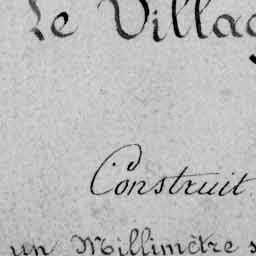 Le Villag
Construit
un Millimètre s